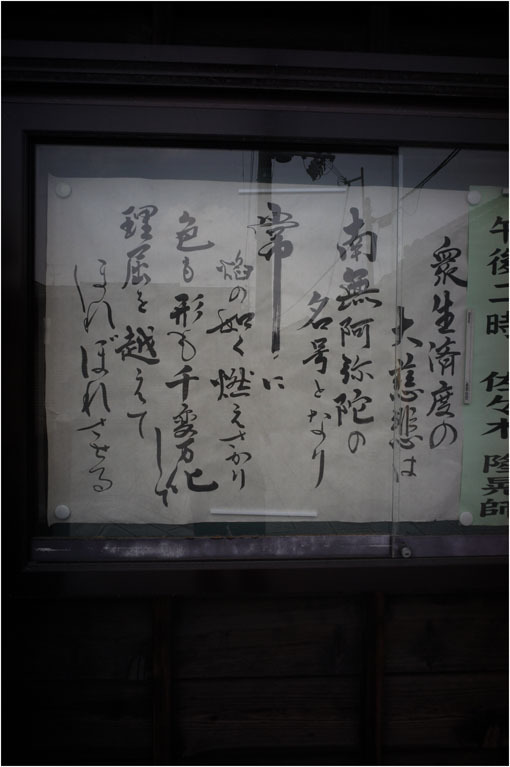 午後二時 佐々木 隆晃師
衆生済度の
大慈悲は
南無阿弥陀の
名号となり
常に
焔の如く燃えさかり
色も形も千変万化
して
理屈を越えて
ほれぼれさせる